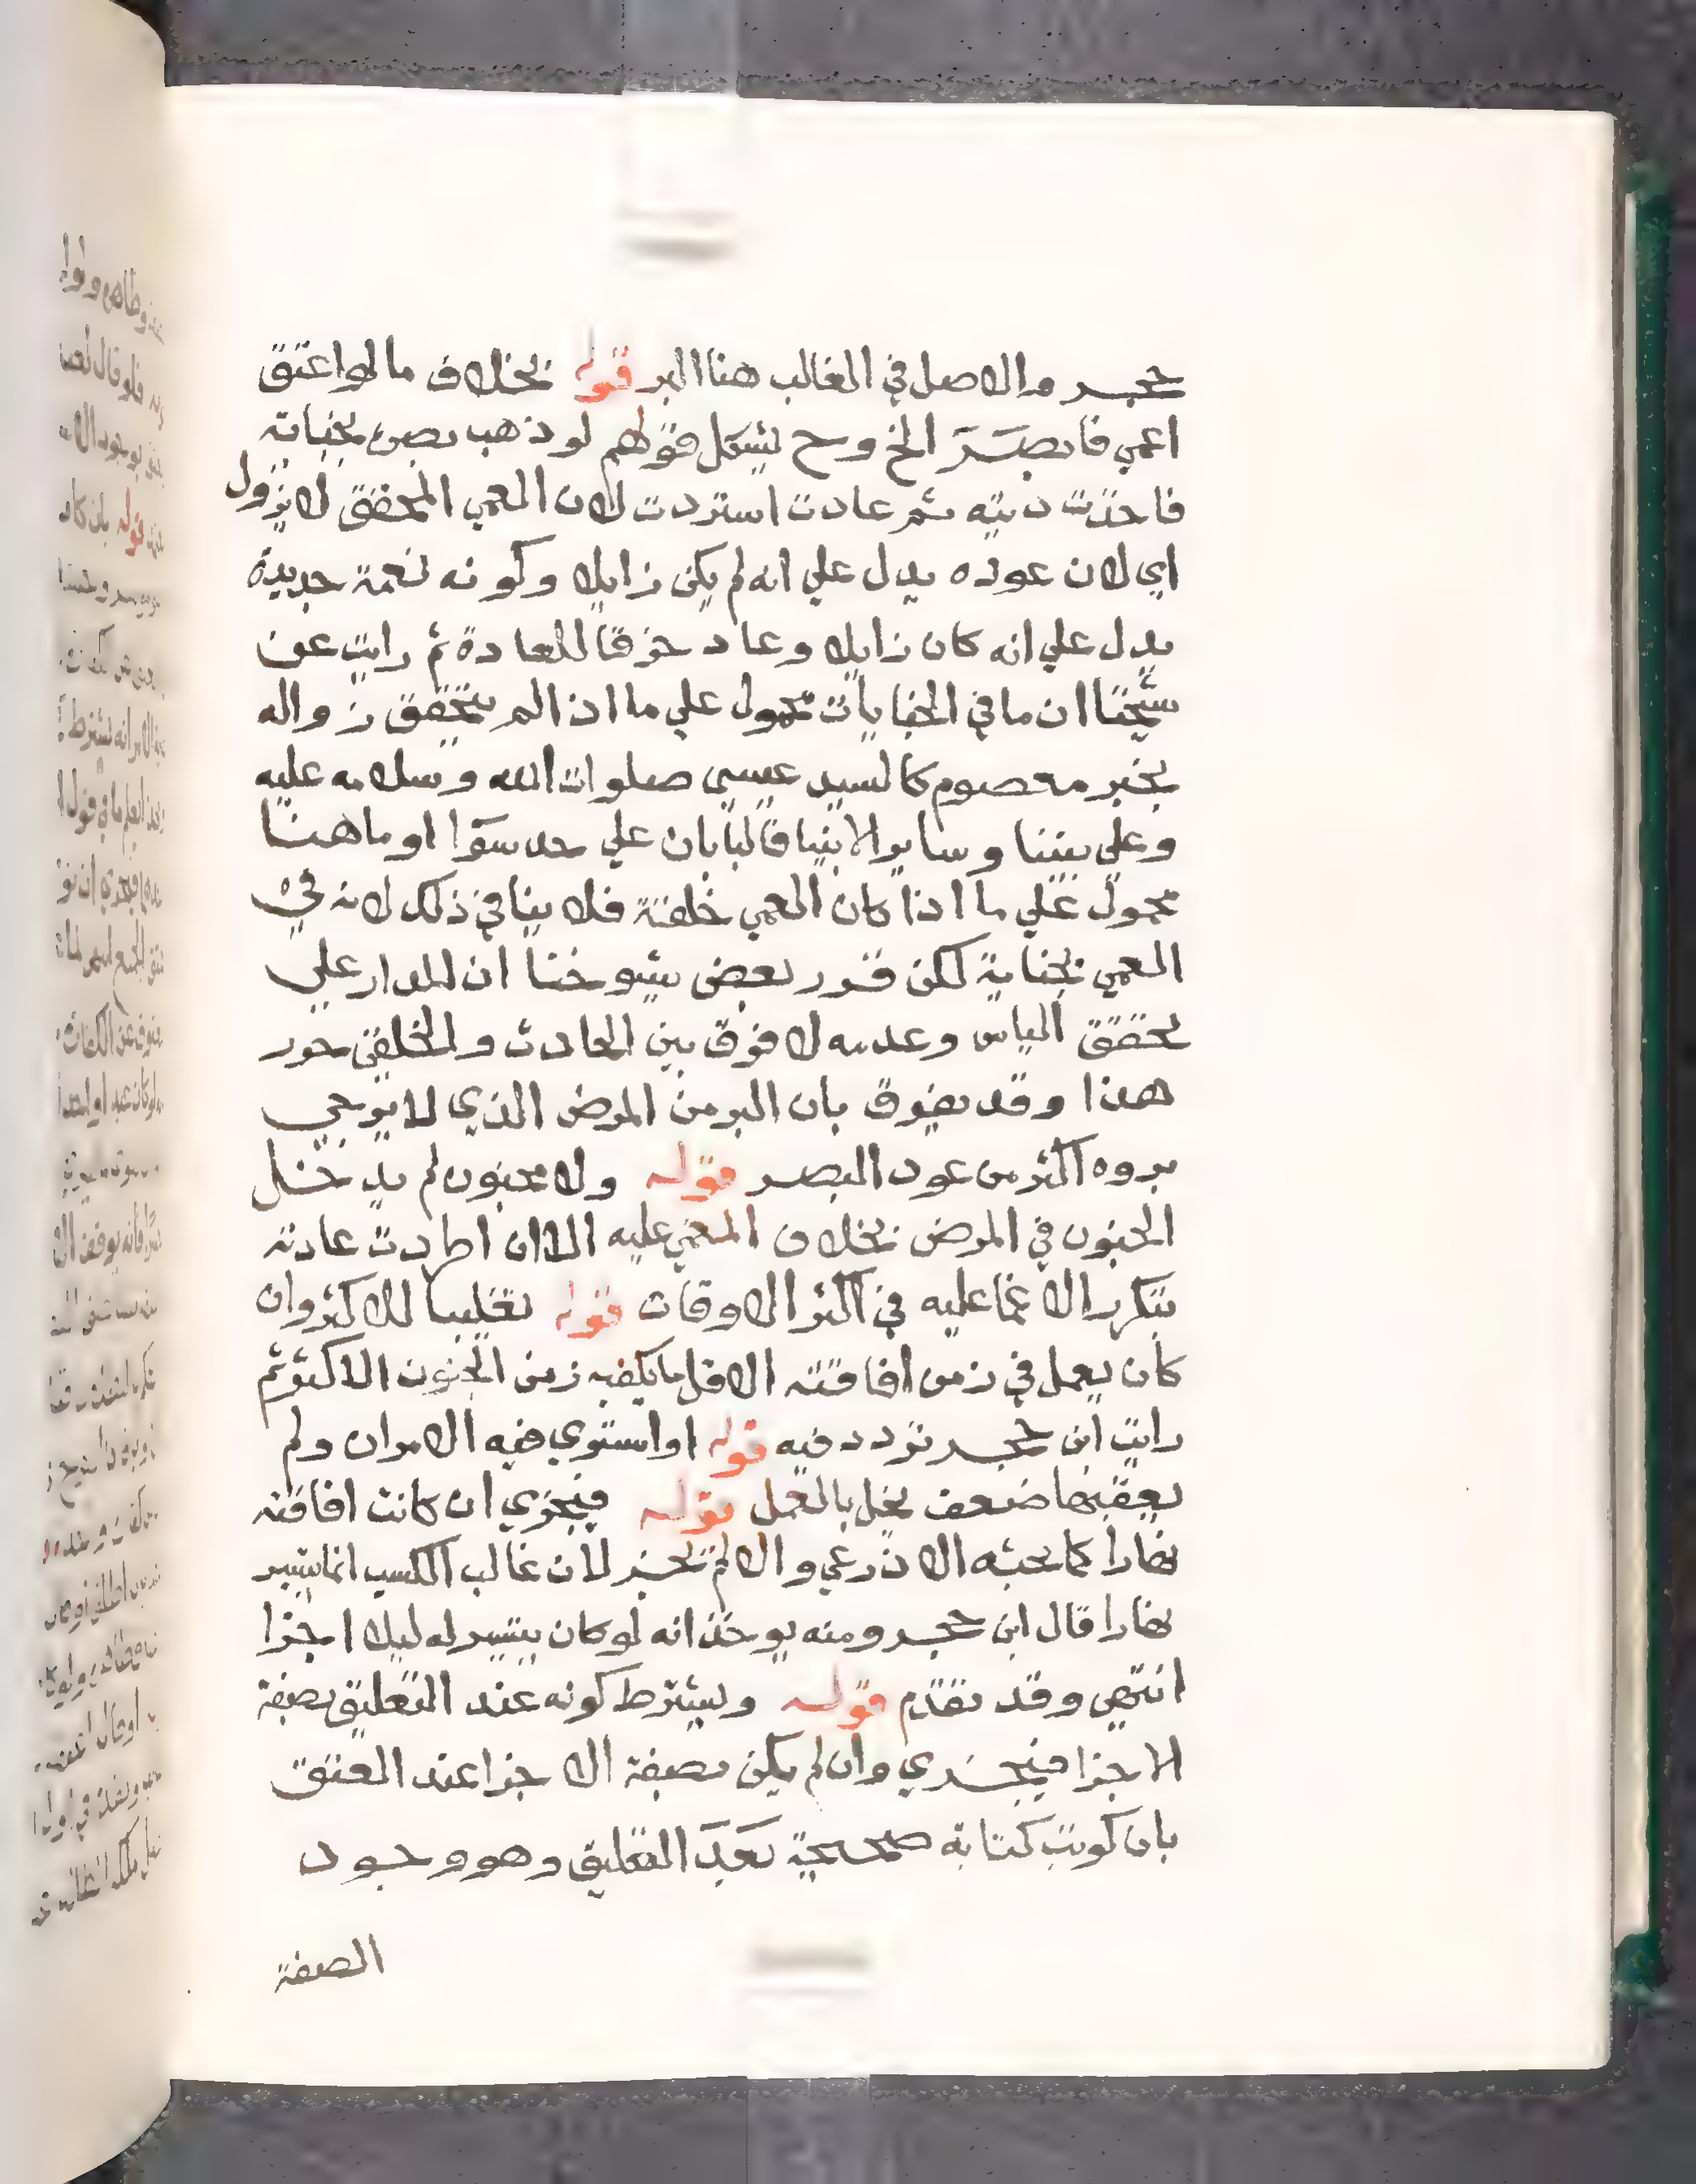 حجر والاصل في الغالب هنا البر قوله بخلاف ما لو اعتق
اعمي فابصر الخ وح يشكل قولهم لو ذهب بصره بجنايته
فاخذت ديته ثم عادت استردت لان العمي المحقق لا يزول
اي لان عوده يدل علي انه لم يكن زايلا وكونه نعمة جديدة
يدل علي انه كان زايلا وعاد خرقا للعادة ثم رايت عن
شيخنا ان ما في الجنايات محمول علي ما اذا لم يتحقق زواله
بخبر معصوم كالسيد عيسي صلوات الله وسلامه عليه
وعلي نبينا وساير الانبيا فالبابان علي حد سوا او ما هنا
محمول علي ما اذا كان العمي خلقة فلا ينافي ذلك لانه في
العمي بجناية لكن قرر بعض شيوخنا ان المدار علي
تحقق الياس وعدمه لا فرق بين الحادث والخلقي حرر
هذا وقد يفرق بان البر من المرض الذي لا يرجي
بروه اكثر من عود البصر قوله ولا مجنون لم يدخل
الجنون في المرض بخلاف المغمي عليه الا ان اطردت عادته
بتكرر الاغما عليه في اكثر الاوقات قوله تغليبا للاكثر وان
كان يعمل في زمن افاقته الاقل ما يكفيه زمن الجنون الاكثر ثم
رايت ابن حجر تردد فيه قوله او استوي فيه الامران ولم
يعقبها ضعف يخل بالعمل قوله فيجزي ان كانت افاقته
نهارا كما بحثه الاذرعي والا لم تجز لان غالب الكسب انما يتيسر
نهارا قال ابن حجر ومنه يوخذ انه لو كان يتيسر له ليلا اجزا
انتهي وقد تقدم قوله ويشترط كونه عند التعليق بصفة
الاجزا فيجزي وان لم يكن بصفة الاجزا عند العتق
بان كوتب كتابة صحيحة بعد التعليق وهو وجود
الصفة